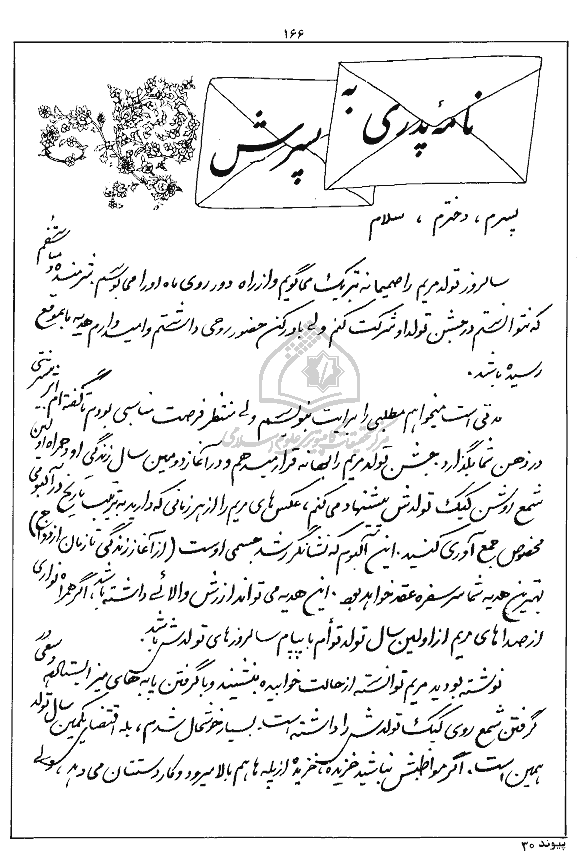 ۱۶۶
نامهٔ پدری به
پسرش
پسرم، دخترم، سلام
سالروز تولد مریم را صمیمانه تبریک می‌گویم و از راه دور روی ماه او را می‌بوسم. شرمنده و متأسفم
که نتوانستم در جشن تولد او شرکت کنم ولی باور کن حضور روحی داشتم و امیدوارم هدیه ما بموقع
رسیده باشد.
مدتی است میخواهم مطلبی را برایت بنویسم ولی منتظر فرصت مناسبی بودم تا گفته‌ام اثر بهتری
در ذهن شما بگذارد. جشن تولد مریم را بهانه قرار میدهم و در آغاز دومین سال زندگی او و همراه اولین
شمع روشن کیک تولدش پیشنهاد می‌کنم، عکس‌های مریم را از هر زمانی که دارید به ترتیب تاریخ در آلبومی
مخصوص جمع آوری کنید. این آلبوم که نشانگر رشد جسمی اوست (از آغاز زندگی تا زمان ازدواج)
بهترین هدیه شما سر سفره عقد خواهد بود. این هدیه می‌تواند ارزش والائی داشته باشد، اگر همراه نواری
از صداهای مریم از اولین سال تولد توأم با پیام سالروزهای تولدش باشد.
نوشته بودید مریم توانسته از حالت خوابیده بنشیند و با گرفتن پایه‌های میز ایستاده و سعی در
گرفتن شمع روی کیک تولدش را داشته است. بسیار خوشحال شدم، بله اقتضای یکمین سال تولد
همین است. اگر مواظبش نباشید خزیده، خزیده از پله‌ها هم بالا میرود و کار دستتان می‌دهد،
پیوند ۳۰